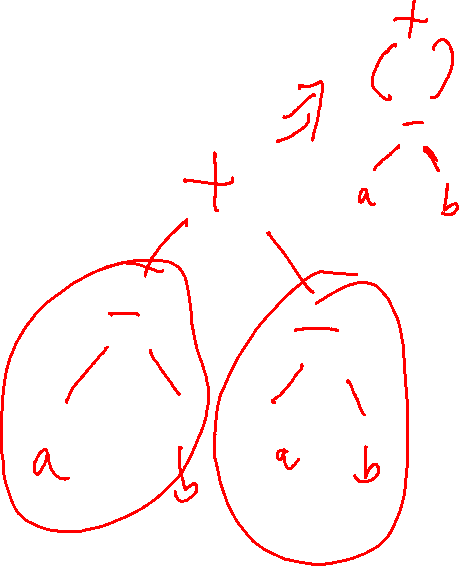 +
-
a b
+
- -
a b a b